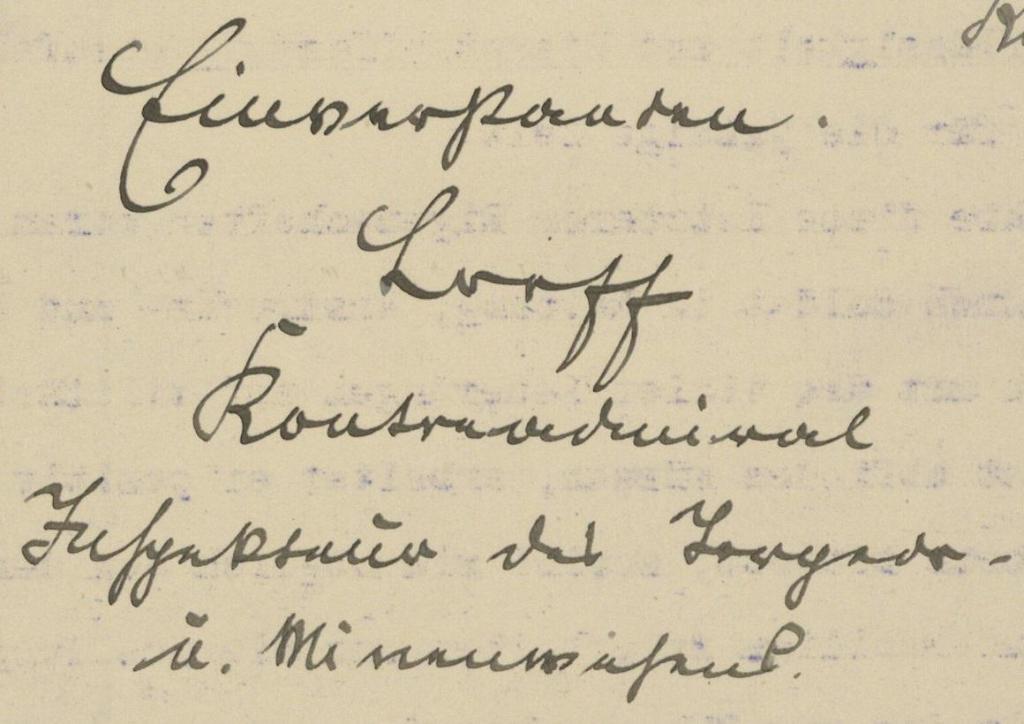 Einverstanden.
Looff
Kontreadmiral
Inspekteur des Torpedo-
u. Minenwesens.